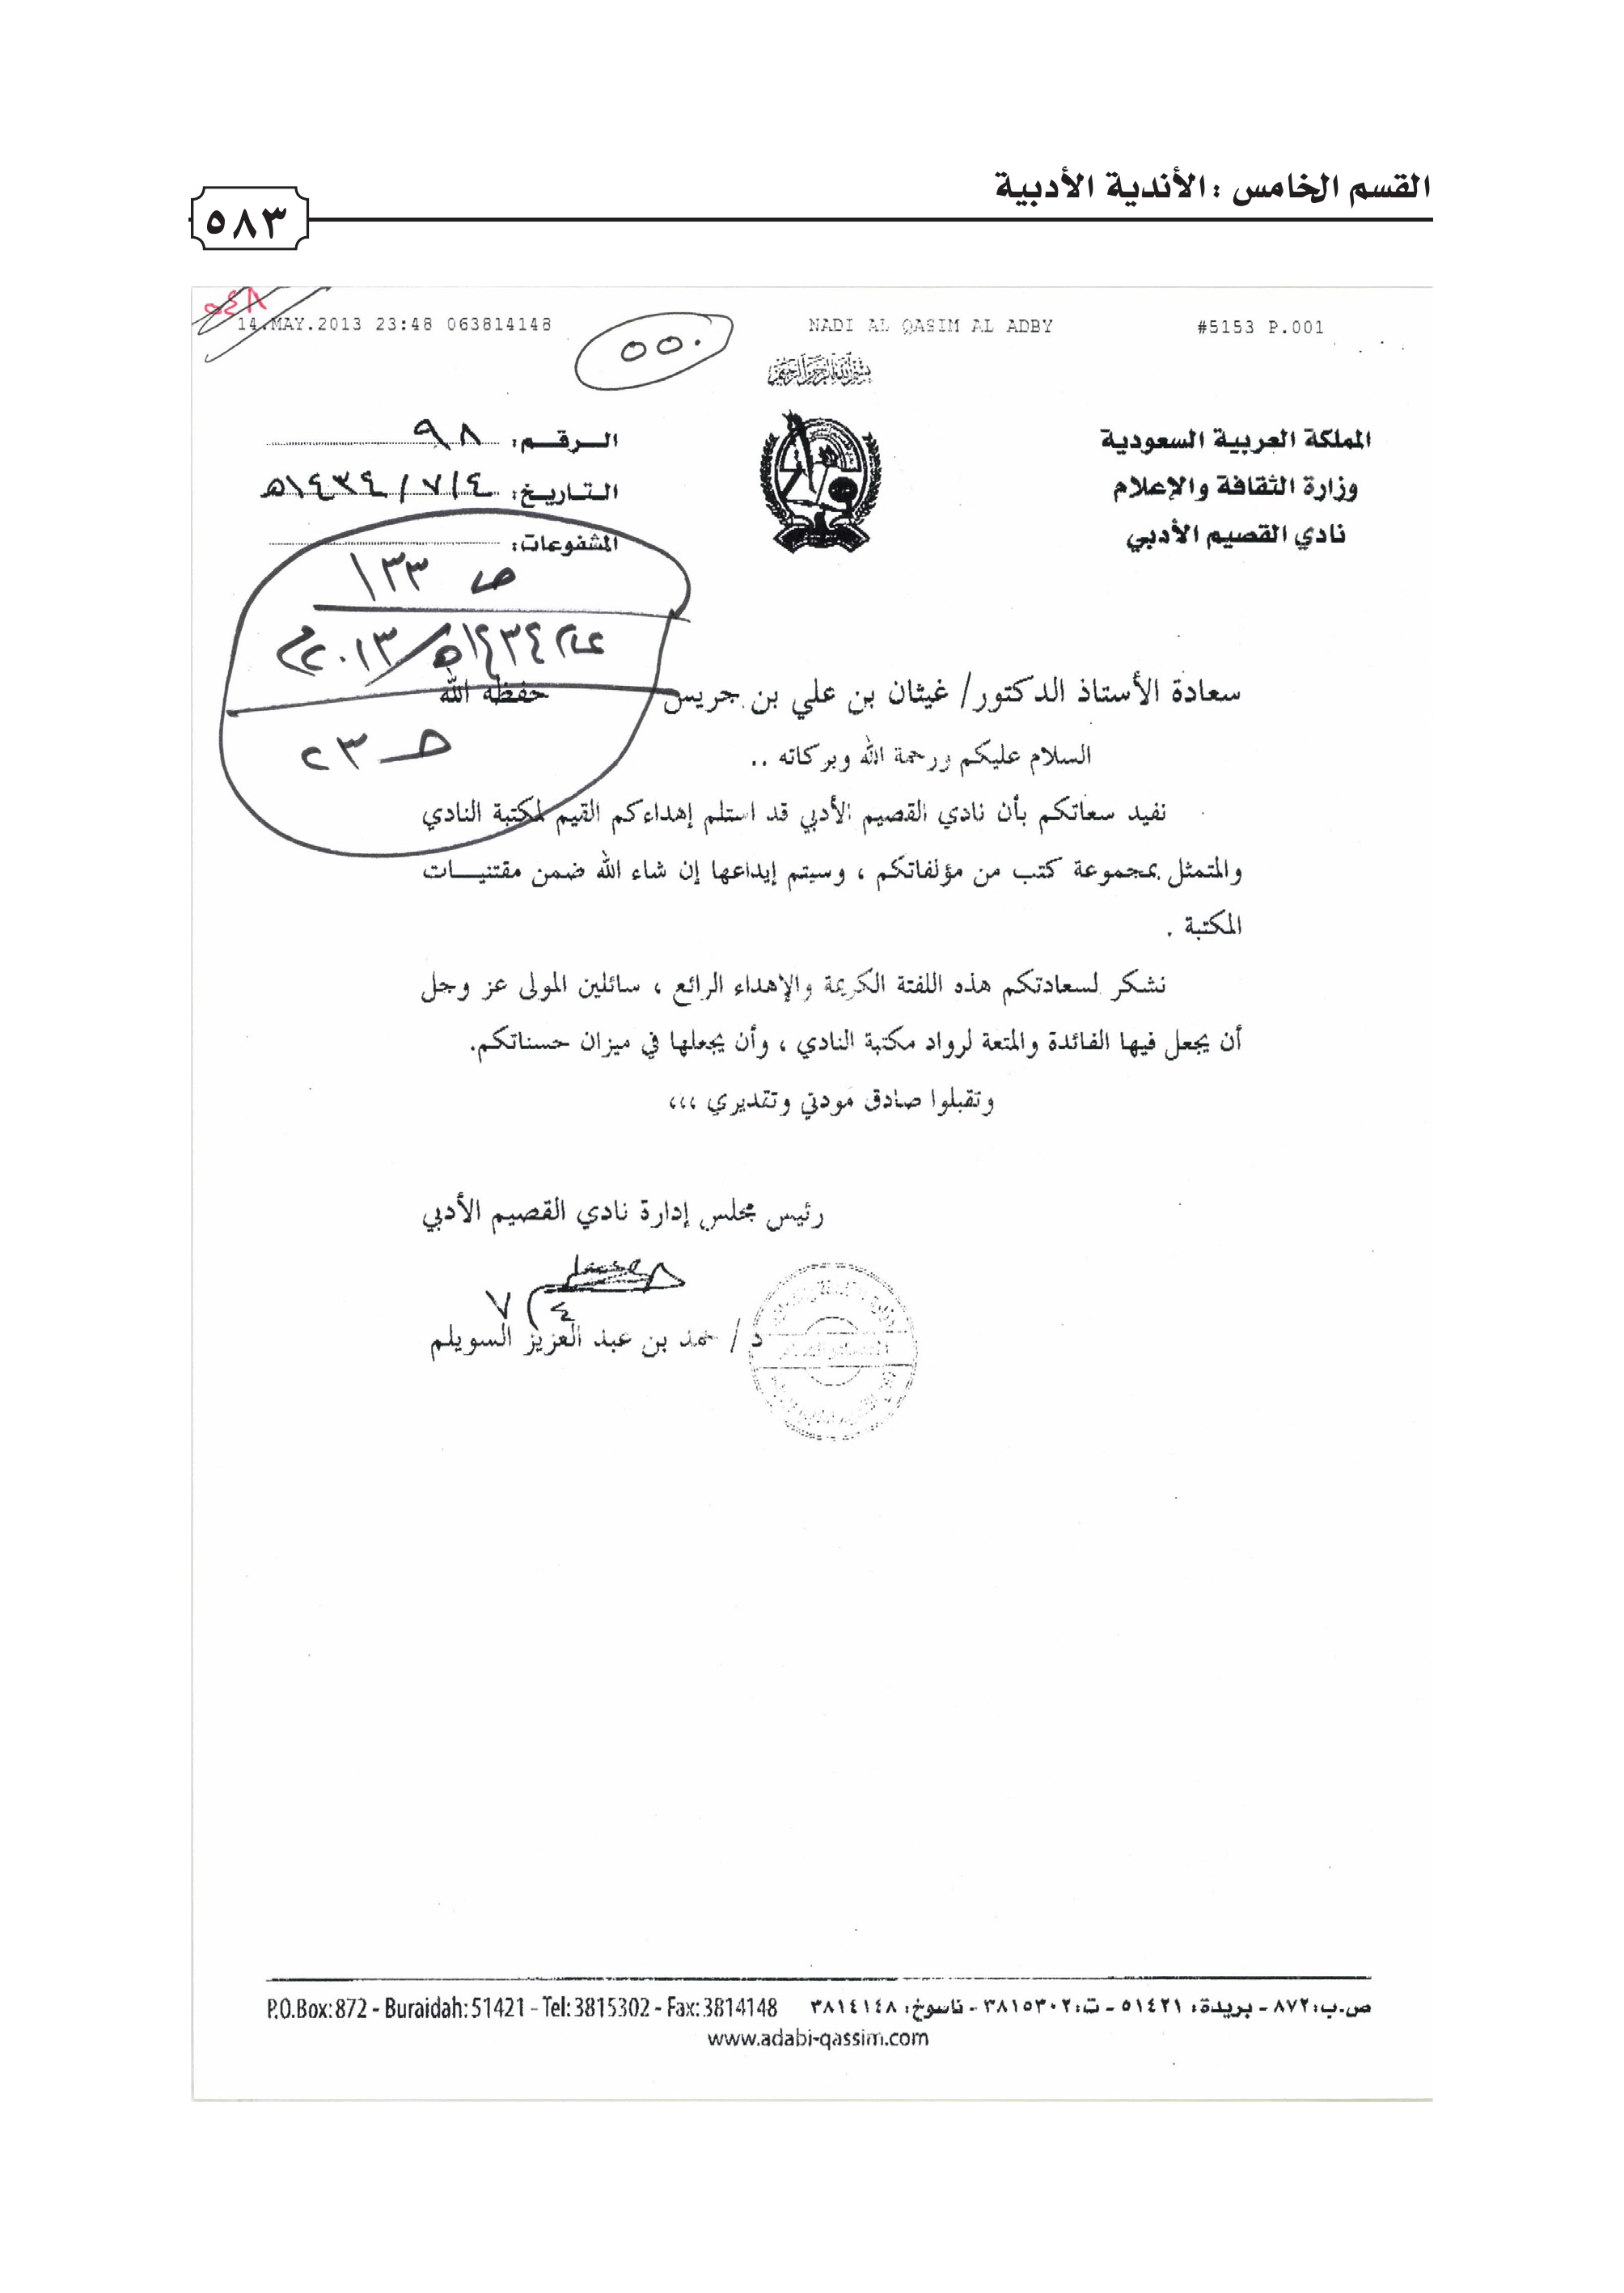 القسم الخامس : الأندية الأدبية
٥٨٣
٥٤٨
14.MAY.2013 23:48 063814148 NADI AL QASIM AL ADBY #5153 P.001
٥٥٠
بسم الله الرحمن الرحيم
المملكة العربية السعودية
وزارة الثقافة والإعلام
نادي القصيم الأدبي
الـرقـــم: ٩٨
التـاريـخ: ١٤٣٤/٧/٤هـ
المشفوعات:
ص ١٣٣
١٤٣٤هـ/٢٠١٣م
حـ ٢٣
سعادة الأستاذ الدكتور/ غيثان بن علي بن جريس حفظه الله
السلام عليكم ورحمة الله وبركاته ..
نفيد سعاتكم بأن نادي القصيم الأدبي قد استلم إهداءكم القيم لمكتبة النادي
والمتمثل بمجموعة كتب من مؤلفاتكم ، وسيتم إيداعها إن شاء الله ضمن مقتنيـــات
المكتبة .
نشكر لسعادتكم هذه اللفتة الكريمة والإهداء الرائع ، سائلين المولى عز وجل
أن يجعل فيها الفائدة والمتعة لرواد مكتبة النادي ، وأن يجعلها في ميزان حسناتكم.
وتقبلوا صادق مودتي وتقديري ،،،
رئيس مجلس إدارة نادي القصيم الأدبي
٧/٤
د / حمد بن عبد العزيز السويلم
ص.ب: ٨٧٢ - بريدة: ٥١٤٢١ - ت: ٣٨١٥٣٠٢ - ناسوخ: ٣٨١٤١٤٨ P.O.Box: 872 - Buraidah: 51421 - Tel: 3815302 - Fax: 3814148
www.adabi-qassim.com